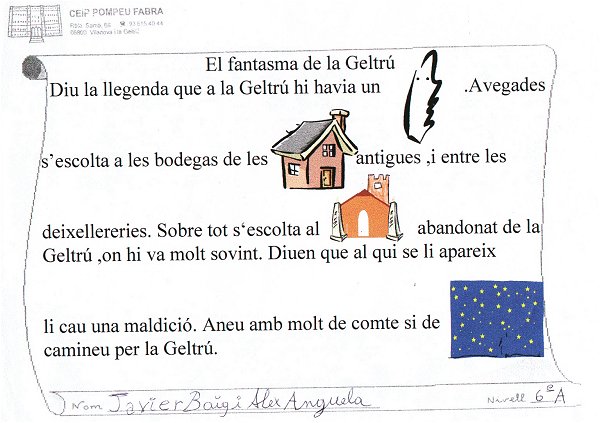 CEIP POMPEU FABRA
08800 Vilanova i la Geltrú
El fantasma de la Geltrú
Diu la llegenda que a la Geltrú hi havia un .Avegades
s'escolta a les bodegas de les antigues ,i entre les
deixellereries. Sobre tot s'escolta al abandonat de la
Geltrú ,on hi va molt sovint. Diuen que al qui se li apareix
li cau una maldició. Aneu amb molt de comte si de
camineu per la Geltrú.
Nom Javier Baigi Alex Anguela Nivell 6è A